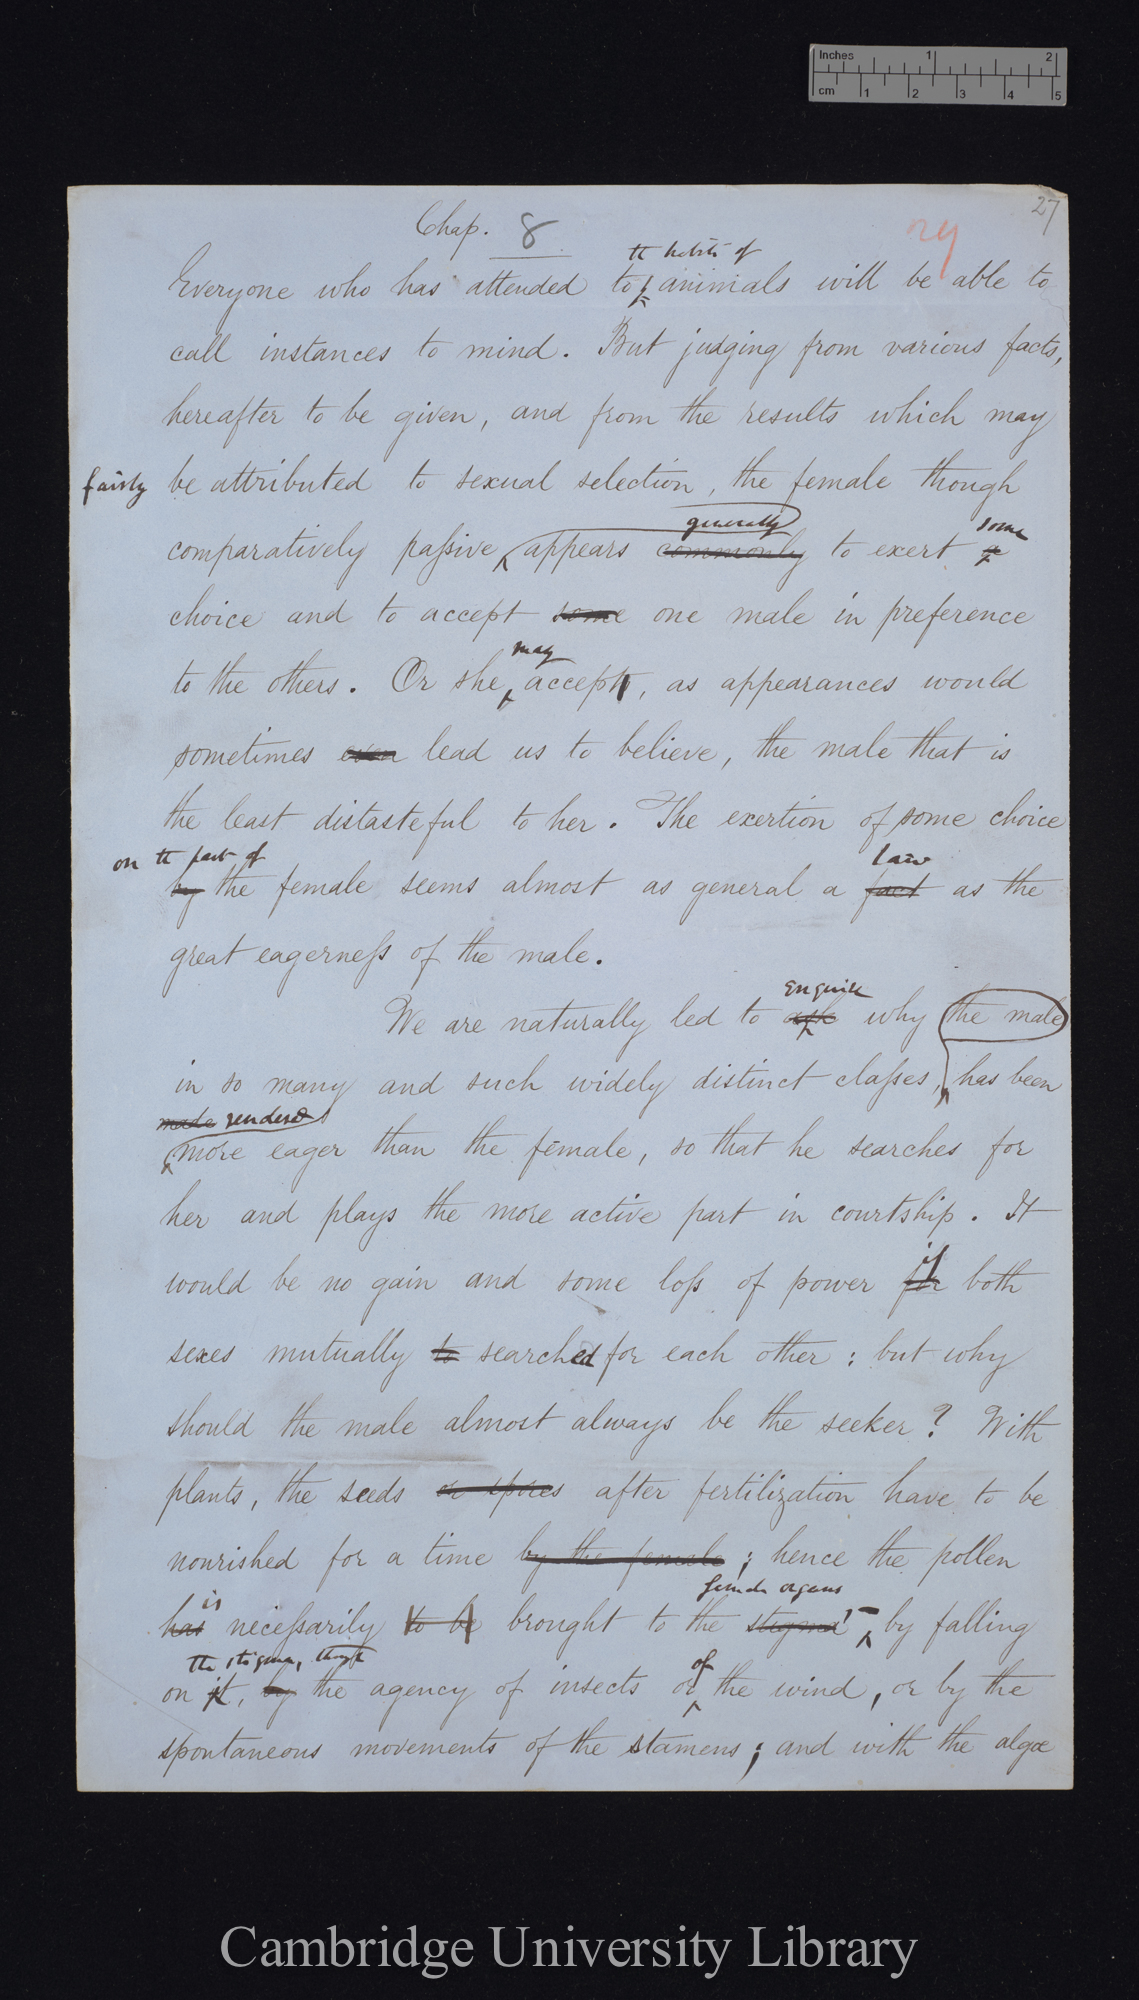 Inches 1 2
cm 1 2 3 4 5
27
Chap. 8
29
th habits of
Everyone who has attended to animals will be able to
call instances to mind. But judging from various facts,
hereafter to be given, and from the results which may
fairly be attributed to sexual selection, the female though
generally some
comparatively passive, appears commonly to exert a
choice and to accept some one male in preference
may
to the others. Or she accept, as appearances would
sometimes even lead us to believe, the male that is
the least distasteful to her. The exertion of some choice
on th part of law
by the female seems almost as general a fact as the
great eagerness of the male.
enquire
We are naturally led to ask why the male
in so many and such widely distinct classes, has been
made rendered
more eager than the female, so that he searches for
her and plays the more active part in courtship. It
if
would be no gain and some loss of power for both
sexes mutually to searched for each other: but why
should the male almost always be the seeker? With
plants, the seeds or spores after fertilization have to be
nourished for a time by the female; hence the pollen
is female organs
has necessarily to be brought to the stigma, – by falling
the stigma, through of
on it, by the agency of insects or the wind, or by the
spontaneous movements of the stamens; and with the algæ
Cambridge University Library